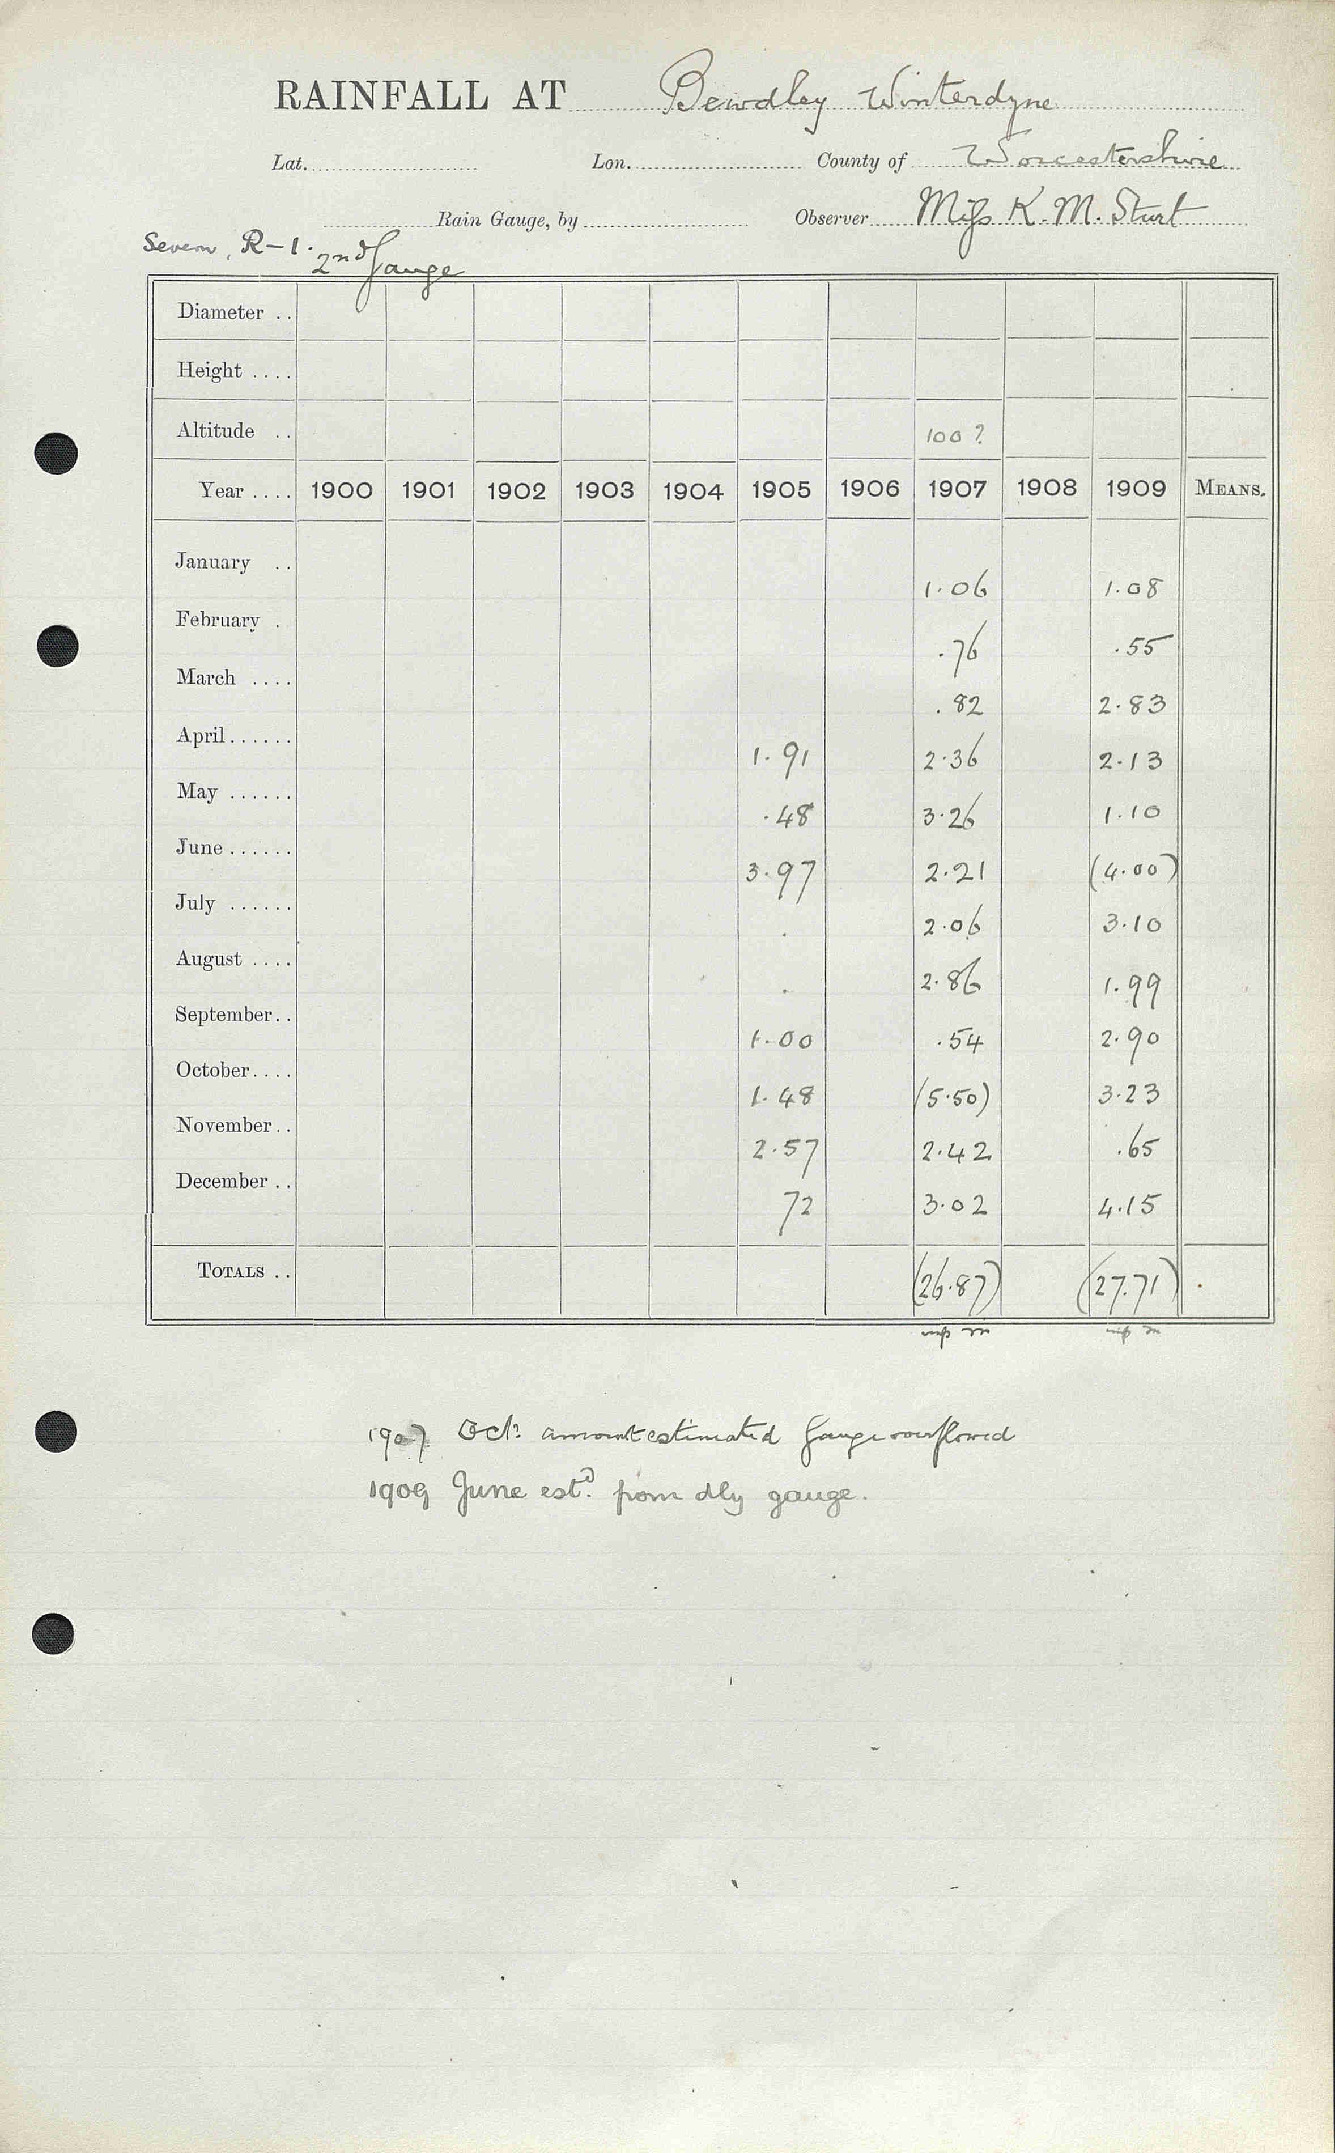 RAINFALL AT Bewdley Winterdyne
Lat. Lon. County of Worcestershire
Rain Gauge, by Observer Miss K. M. Sturt
Severn, R-1. 2nd Gauge
Diameter ..
Height ....
Altitude .. 100 ?
Year .... 1900 1901 1902 1903 1904 1905 1906 1907 1908 1909 MEANS.
January .. 1.06 1.08
February . .76 .55
March .... .82 2.83
April...... 1.91 2.36 2.13
May ...... .48 3.26 1.10
June...... 3.97 2.21 (4.00)
July ...... . 2.06 3.10
August .... . 2.86 1.99
September.. 1.00 .54 2.90
October.... 1.48 (5.50) 3.23
November.. 2.57 2.42 .65
December .. 72 3.02 4.15
TOTALS .. (26.87) (27.71) .
1907 Oct. amount estimated Gauge overflowed
1909 June estd. from dly gauge.